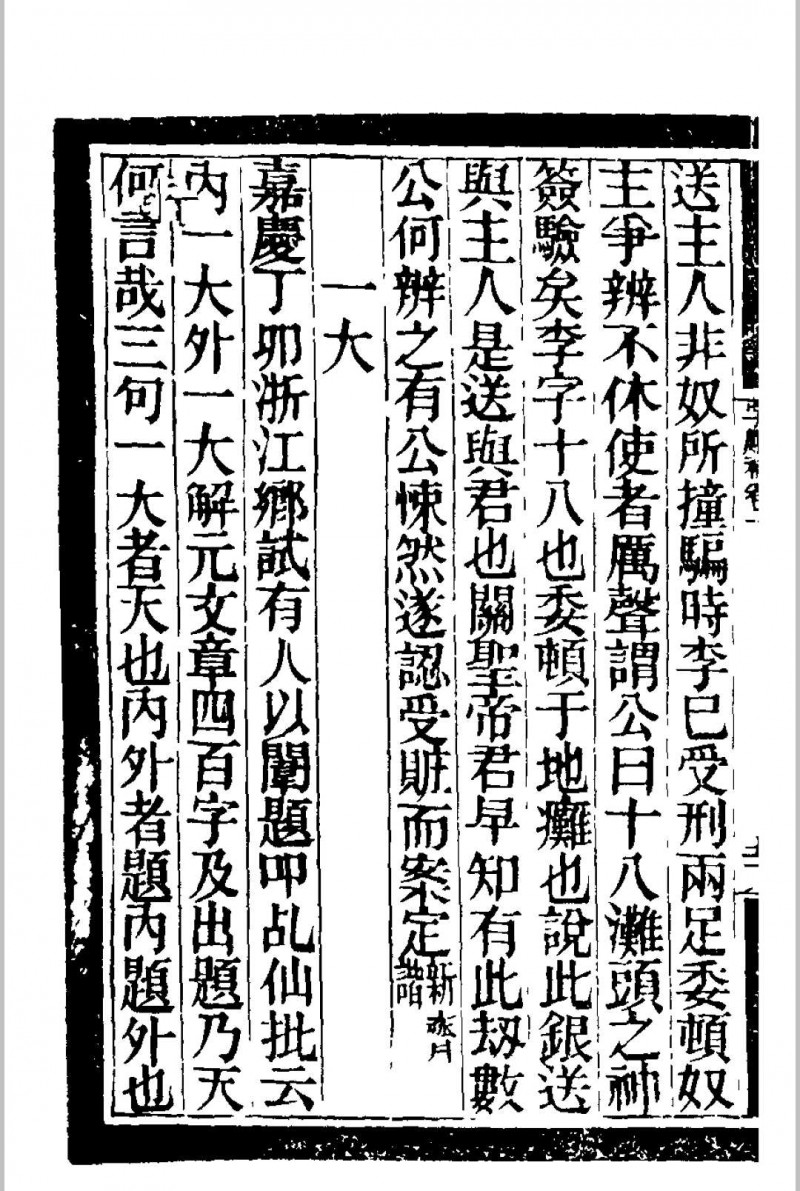 送主人非奴所撞騙時李已受刑兩足委頓奴
主爭辨不休使者厲聲謂公曰十八灘頭之神
簽驗矣李字十八也委頓于地癱也說此銀送
與主人是送與君也關聖帝君早知有此刼數
公何辨之有公悚然遂認受賍而案定新齊諧
一大
嘉慶丁卯浙江鄉試有人以闈題叩乩仙批云
內一大外一大解元文章四百字及出題乃天
何言哉三句一大者天也內外者題內題外也